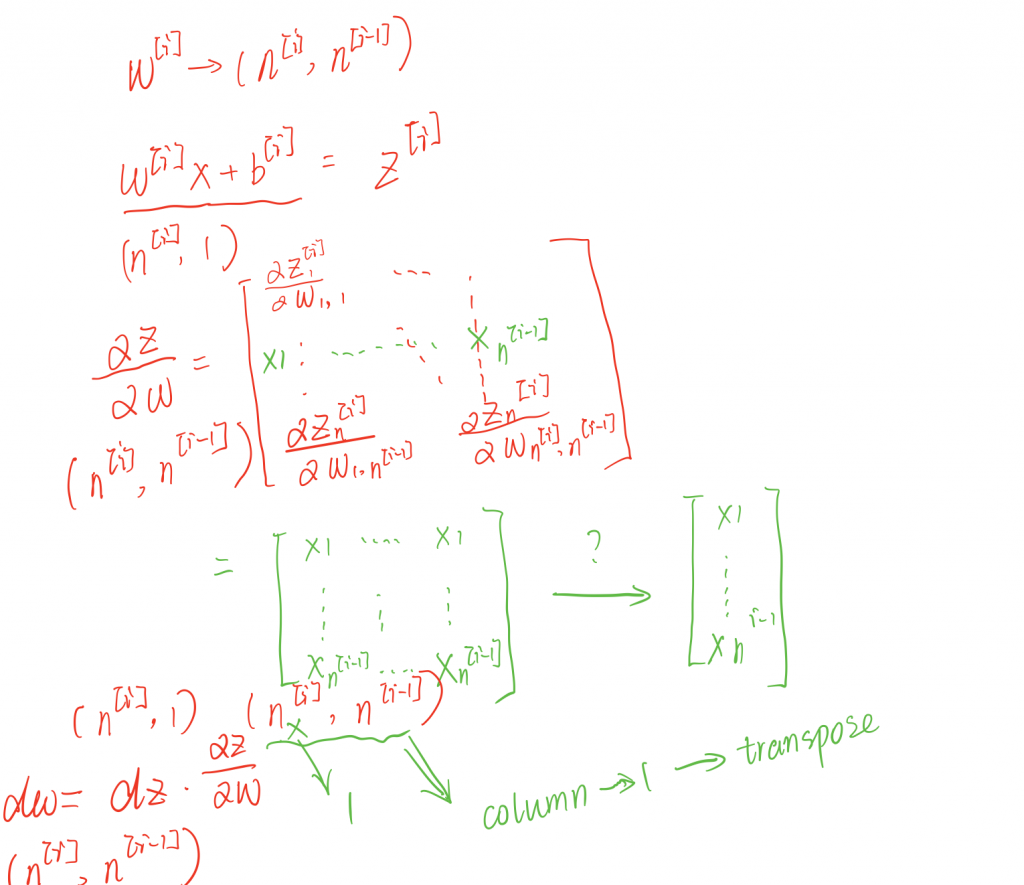 W^[i] → (n^[i], n^[i-1])
W^[i] x + b^[i] = z^[i]
(n^[i], 1)
∂z/∂w = [ ∂z_1^[i]/∂w_1,1 ----
x1 ------ x_n^[i-1]
∂z_n^[i]/∂w_1,n^[i-1] ∂z_n^[i]/∂w_n^[i],n^[i-1] ]
(n^[i], n^[i-1])
= [ x1 ---- x1 ? → [ x1
x_n^[i-1] ---- x_n^[i-1] ] x_n^i-1 ]
(n^[i], 1) (n^[i], n^[i-1])
x
dw = dz · ∂z/∂w
1 column → 1 → transpose
(n^[i], n^[i-1])